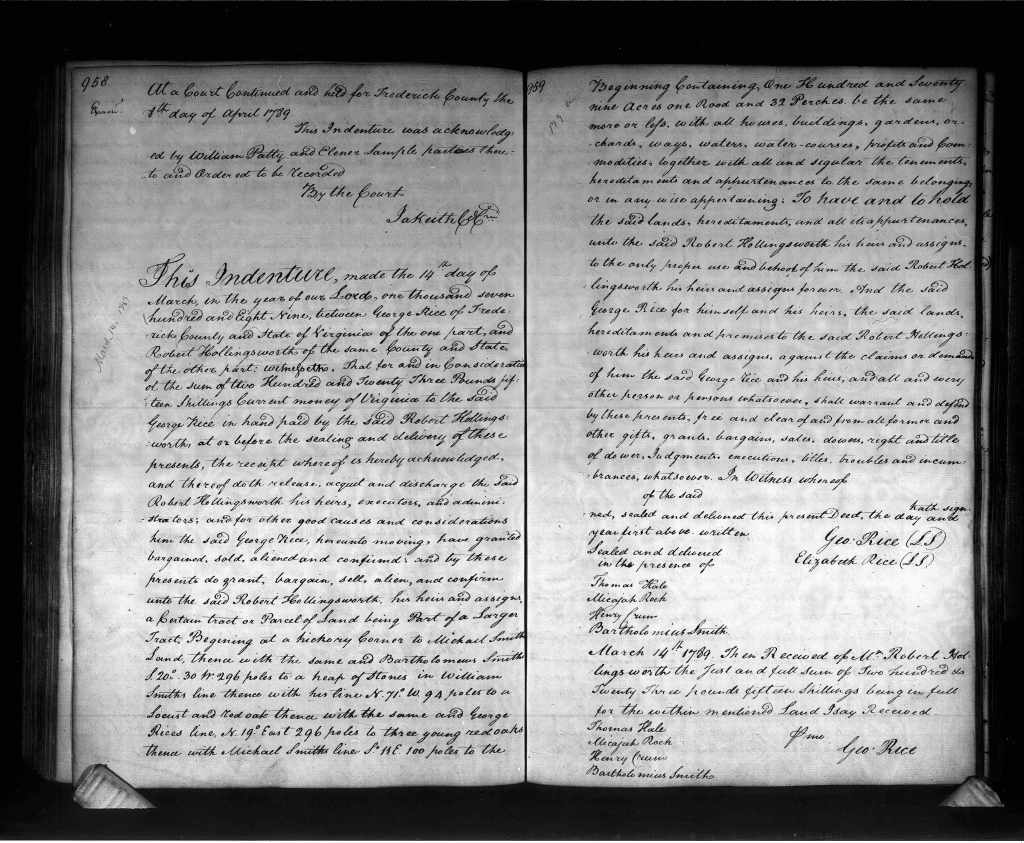 958.
Exam.d
At a Court Continued and held for Frederick County the
8th day of April 1789
This Indenture was acknowledg
ed by William Patty and Elener Sample parties there
to and Ordered to be recorded
By the Court
Jakeith C&Cur
March 14. 1789
This Indenture, made the 14th day of
March, in the year of our Lord, one thousand seven
hundred and Eight Nine, between George Rice of Frede-
rick County and State of Virginia of the one part, and
Robert Hollingsworth of the same County and State
of the other part: witnesseth. That for and in Consideration
of the sum of two Hundred and Twenty Three Pounds fif-
teen Shillings Current money of Virginia to the said
George Rice in hand paid by the said Robert Hollings-
worth, at or before the sealing and delivery of these
presents, the receipt whereof is hereby acknowledged,
and thereof doth release, acquit and discharge the said
Robert Hollingsworth his heirs, executors, and admini-
strators; and for other good causes and considerations
him the said George Rice, hereunto moving, have granted
bargained, sold, aliened and confirmd: and by these
presents do grant, bargain, sell, alien, and confirm
unto the said Robert Hollingsworth, his heir and assigns,
a Certain tract or Parcel of Land being Part of a Larger
Tract, Begining at a hickory Corner to Michael Smith
Land, thence with the same and Bartholomeus Smiths
S. 20°. 30 W. 296 poles to a heap of Stones in William
Smiths line thence with his line N. 71°. W. 94 poles to a
Locust and red oak thence with the same and George
Rices line, N. 19° East 296 poles to three young red oaks
thence with Michael Smiths line So. 18 E. 100 poles to the
959
179
Beginning Containing, One Hundred and Seventy
nine Acres one Rood and 32 Perches. be the same
more or less, with all houses, buildings, gardens, or-
chards, ways, waters, water-courses, profits and Com-
modities, together with all and sigular the tenements,
hereditaments and appurtenances to the same belonging,
or in any wise appertaining: To have and to hold
the said lands, hereditaments, and all its appurtenances,
unto the said Robert Hollingsworth his heir and assigns,
to the only proper use and behoof of him the said Robert Hol-
lingsworth his heir and assigns forever. And the said
George Rice for himself and his heirs, the said lands,
hereditaments and premises to the said Robert Hollings-
worth his heirs and assigns, against the claims or demands
of him the said George Rice and his heirs, and all and every
other person or persons whatsoever, shall warrant and defend
by these presents, free and clear of and from all former and
other gifts, grants, bargains, sales, dowers, right and title
of dower, Judgments, executions, titles, troubles and incum-
brances, whatsoever. In Witness whereof
of the said
hath sign
ned, sealed and delivered this present Deed, the day and
year first above written
Geo. Rice (LS)
Sealed and delivered
Elizabeth Rice (LS)
in the presence of
Thomas Hale
Micajah Roch
Henry Crum
Bartholomius Smith
March 14th 1789. Then Received of Mr. Robert Hol-
lingsworth the Just and full Sum of Two hundred &
Twenty Three pounds fifteen Shillings being in full
for the within mentiond Land I say Received
Thomas Hale
Pr me
Micajah Roch
Geo Rice
Henry Crum
Bartholomius Smith